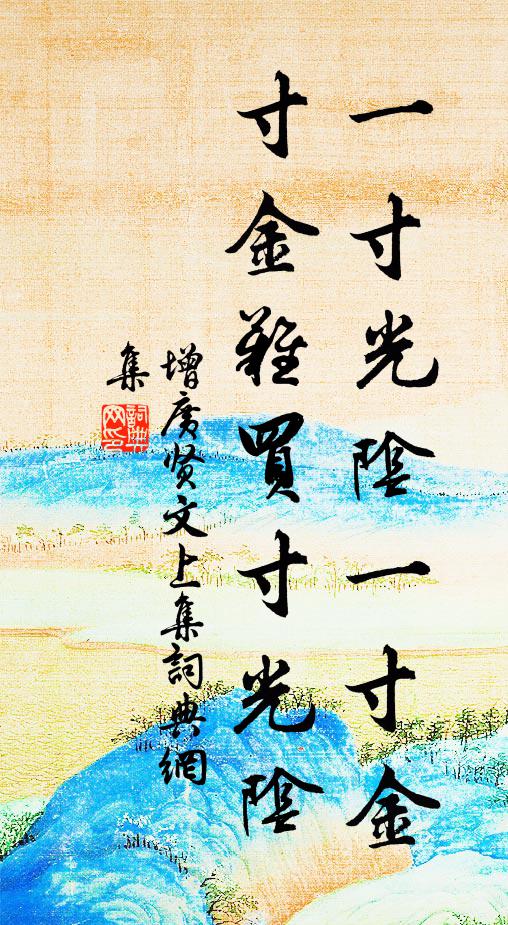 一寸光陰一寸金
寸金難買寸光陰
增廣贤文上集詞典網
集
詞典
网印